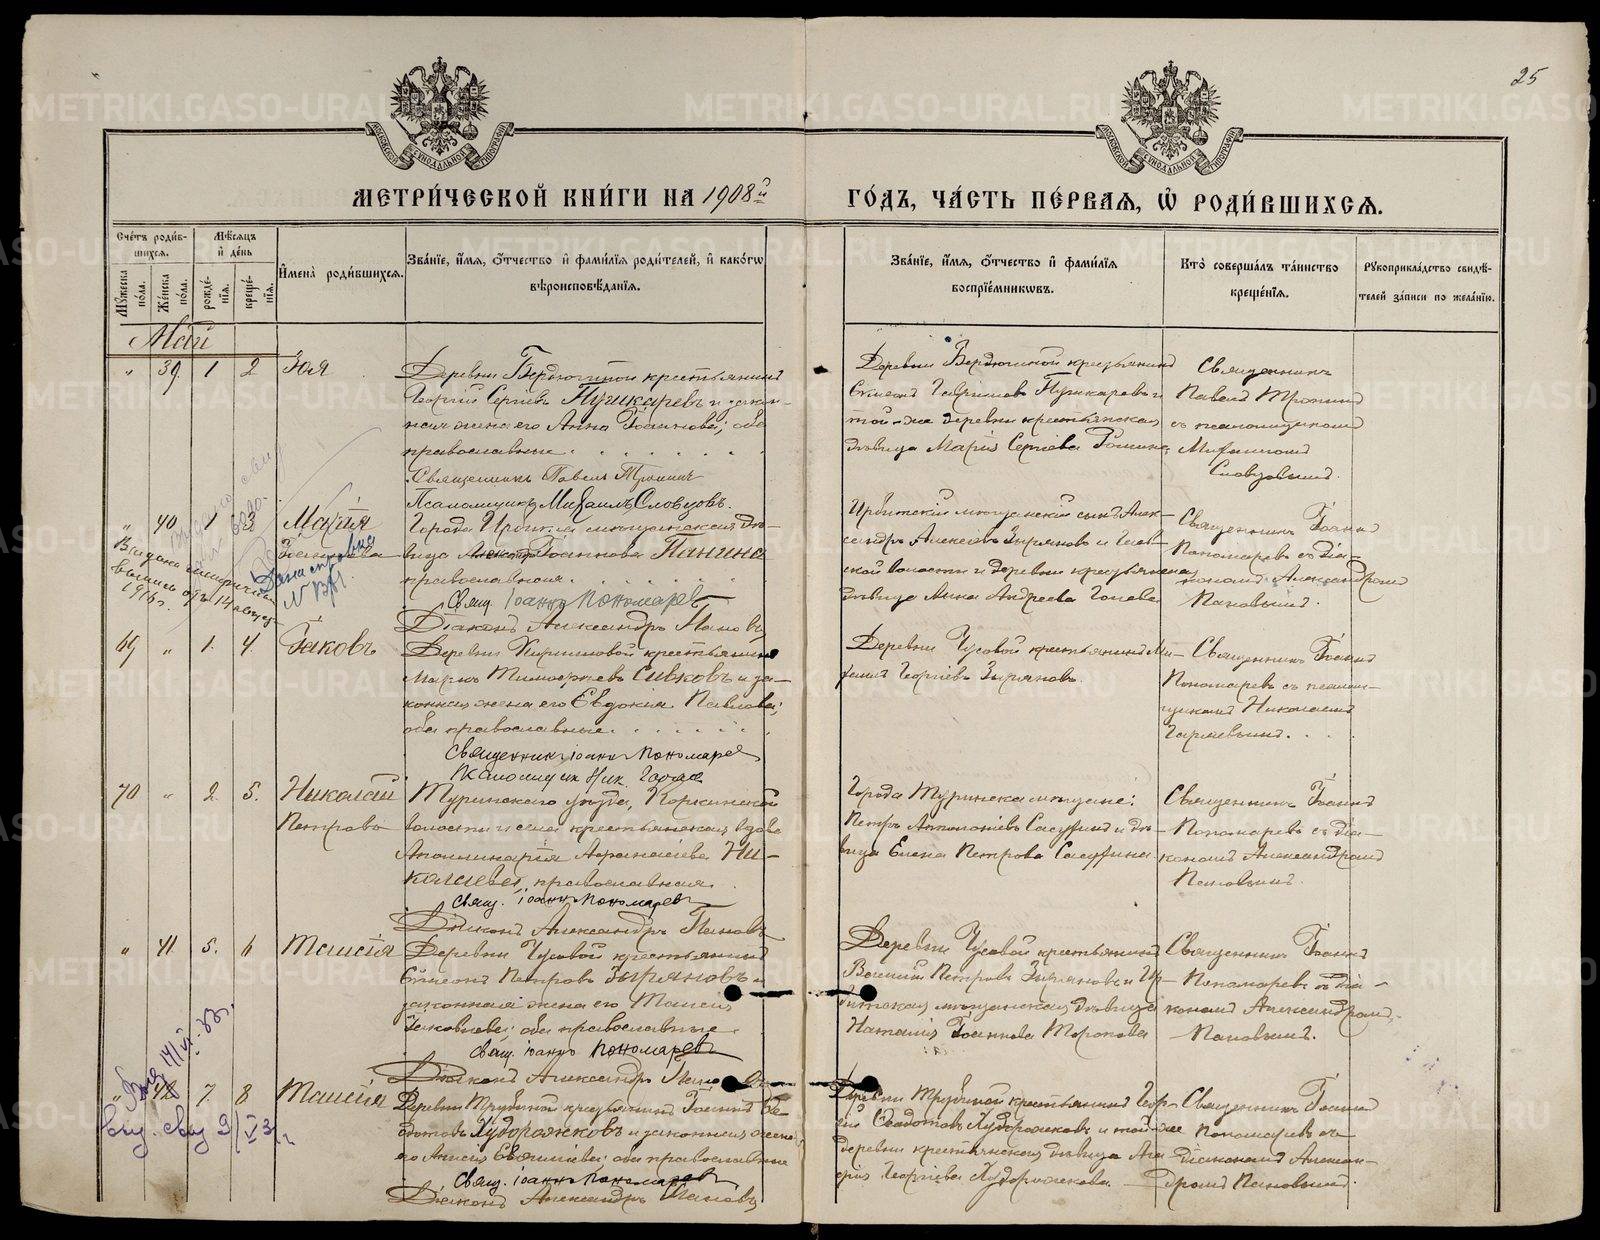 25
МЕТРИ́ЧЕСКОЙ КНИ́ГИ НА 1908й ГО́ДЪ, ЧА́СТЬ ПЕ́РВАЯ, Ѽ РОДИ́ВШИХСЯ.
Счетъ родившихся.
Мужеска пола.
Женска пола.
Мѣсяцъ и день
рожденія.
крещенія.
Имена родившихся.
Званіе, имя, отчество и фамилія родителей, и какогѡ
вѣроисповѣданія.
Званіе, имя, отчество и фамилія
воспріемникѡвъ.
Кто совершалъ таинство
крещенія.
Рукоприкладство свидѣ-
телей записи по желанію.
Май
" 39. 1 2 Зоя
Деревни Бердюгиной крестьянинъ
Георгій Сергіевъ Пушкаревъ и закон-
ная жена его Анна Іоаннова; оба
православные
Священникъ Павелъ Тронинъ
Псаломщикъ Михаилъ Словцовъ.
Деревни Бердюгиной крестьянинъ
Симеонъ Гавриловъ Пушкаревъ и
той-же деревни крестьянская
дѣвица Марія Сергіева
Священникъ
Павелъ Тронинъ
съ псаломщикомъ
Михаиломъ
Словцовымъ.
" 40 1 3 Марія
Іоаннова
Дана справка
Выдана метрическая
выпись
1916 г.
Города Ирбита мѣщанская дѣ-
вица Іоаннова Панина
православная
Свящ. Іоаннъ Пономаревъ
Діаконъ Александръ Пановъ
Ирбитскій мѣщанскій сынъ Алек-
сандръ Алексѣевъ Зыряновъ и
ской волости и деревни крестьянская
дѣвица Анна Андреева
Священникъ Іоаннъ
Пономаревъ съ діа-
кономъ Александромъ
Пановымъ.
69 " 1. 4. Іаковъ
Деревни Кирилловой крестьянинъ
Марко Тимофеевъ Сивковъ и за-
конная жена его Евдокія Павлова;
оба православные
Священникъ Іоаннъ Пономаревъ
Псаломщик Ник.
Деревни Чусовой крестьянинъ Ми-
Георгіевъ Зыряновъ.
Священникъ Іоаннъ
Пономаревъ съ псалом-
щикомъ Николаемъ
70 " 2. 5. Николай
Петровъ
Туринскаго уѣзда, Коркинской
волости и села крестьянская вдова
Аполлинарія Афанасіева Ни-
колаева, православная.
Свящ. Іоаннъ Пономаревъ
Діаконъ Александръ Пановъ
Города Туринска мѣщане:
Петръ Сасуринъ и дѣ-
вица Елена Петрова Сасурина
Священникъ Іоаннъ
Пономаревъ съ діа-
кономъ Александромъ
Пановымъ.
" 41 5. 6 Таисія
Деревни Чусовой крестьянинъ
Симеонъ Петровъ Зыряновъ и
законная жена его Таисія
Іаковлева; оба православные
Свящ. Іоаннъ Пономаревъ
Діаконъ Александръ Пановъ
Деревни Чусовой крестьянинъ
Василій Петровъ Зыряновъ и Ир-
битская мѣщанская дѣвица
Наталія Іоаннова Торопова
Священникъ Іоаннъ
Пономаревъ съ діа-
кономъ Александромъ
Пановымъ.
" 42 7. 8 Таисія
Деревни Трубиной крестьянинъ Іоаннъ Ѳе-
дотовъ Худорожковъ и законная жена
его оба православные
Свящ. Іоаннъ Пономаревъ
Діаконъ Александръ Пановъ
Деревни Трубиной крестьянинъ Геор-
гій Ѳедотовъ Худорожковъ и той-же
деревни крестьянская дѣвица
Георгіева Худорожкова.
Священникъ Іоаннъ
Пономаревъ съ
діакономъ Алексан-
дромъ Пановымъ.